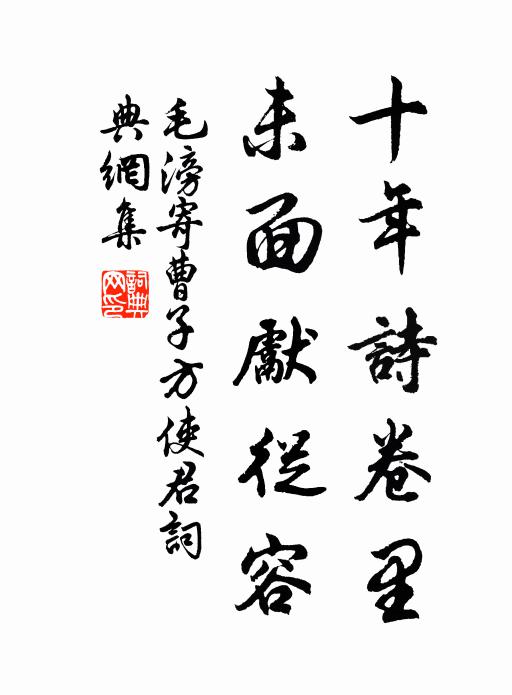 十年詩卷里
未面獻從容
毛滂寄曹子方使君詞
典網集
詞典
网印